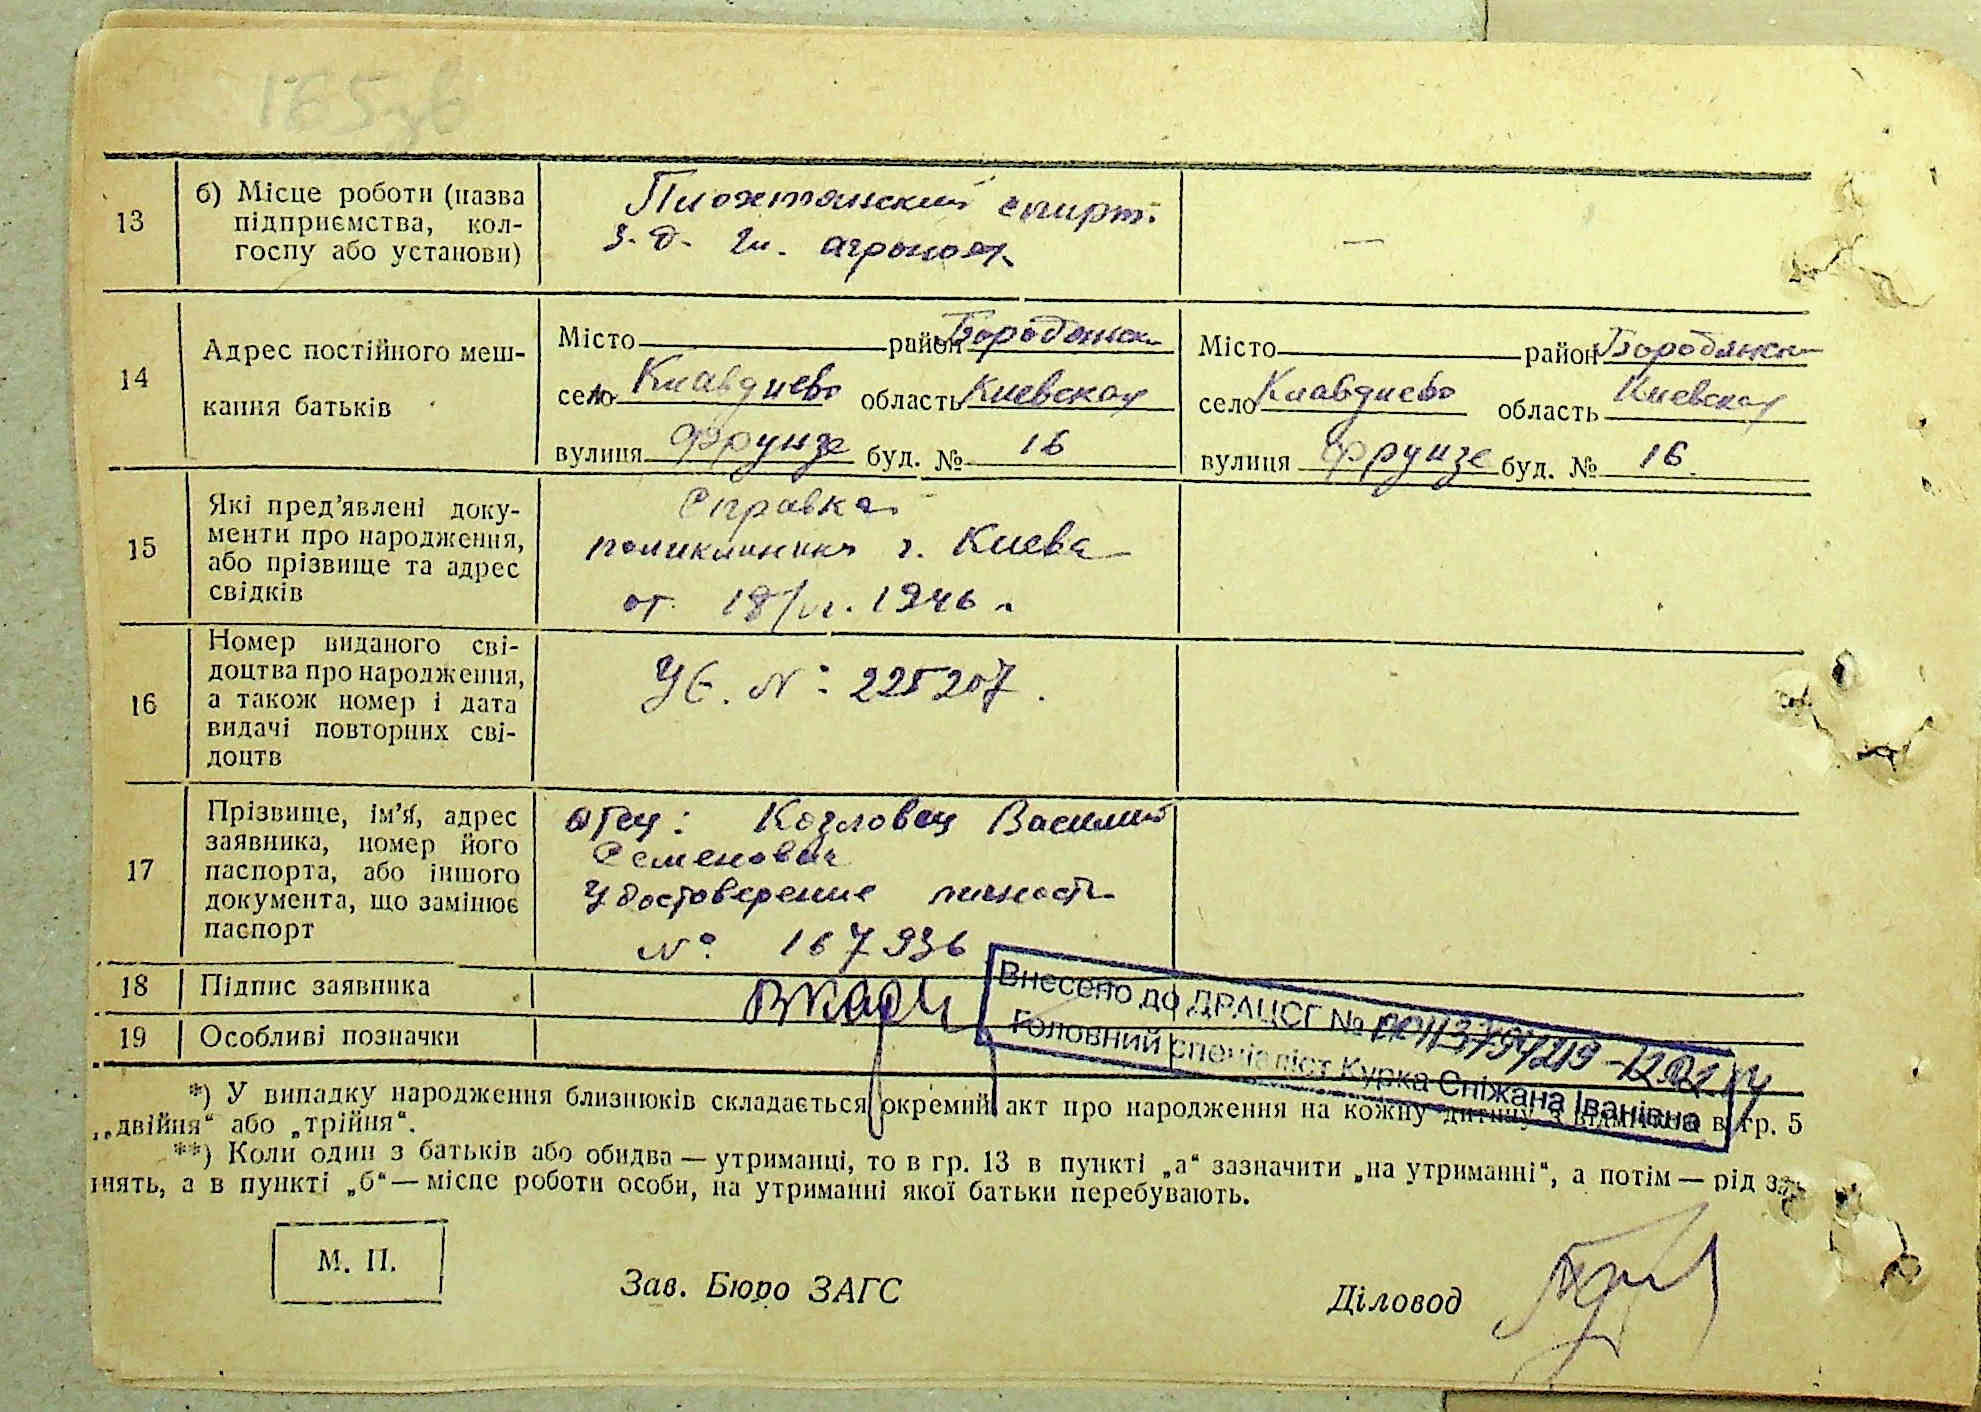 165зв
13
б) Місце роботи (назва
підприємства, кол-
госпу або установи)
спирт.
з-д. гл. агроном
—
14
Адрес постійного меш-
кання батьків
Місто район Бородянск
село Клавдиево область Киевская
вулиця Фрунзе буд. № 16
Місто район Бородянск
село Клавдиево область Киевская
вулиця Фрунзе буд. № 16.
15
Які пред’явлені доку-
менти про народження,
або прізвище та адрес
свідків
Справка
поликлиники г. Киева
от 18/VI. 1946 г.
16
Номер виданого сві-
доцтва про народження,
а також номер і дата
видачі повторних сві-
доцтв
УЄ. №: 225207.
17
Прізвище, ім’я, адрес
заявника, номер його
паспорта, або іншого
документа, що замінює
паспорт
отец: Козловец Василий
Семенович
Удостоверение личности
№: 167936
18
Підпис заявника
19
Особливі позначки
Внесено до ДРАЦСГ №
Головний спеціаліст Курка Сніжана Іванівна
*) У випадку народження близнюків складається окремий акт про народження на кожну дитину з відміткою в гр. 5
„двійня“ або „трійня“.
**) Коли один з батьків або обидва — утриманці, то в гр. 13 в пункті „а“ зазначити „на утриманні“, а потім — рід за-
нять, а в пункті „б“ — місце роботи особи, на утриманні якої батьки перебувають.
М. П.
Зав. Бюро ЗАГС
Діловод